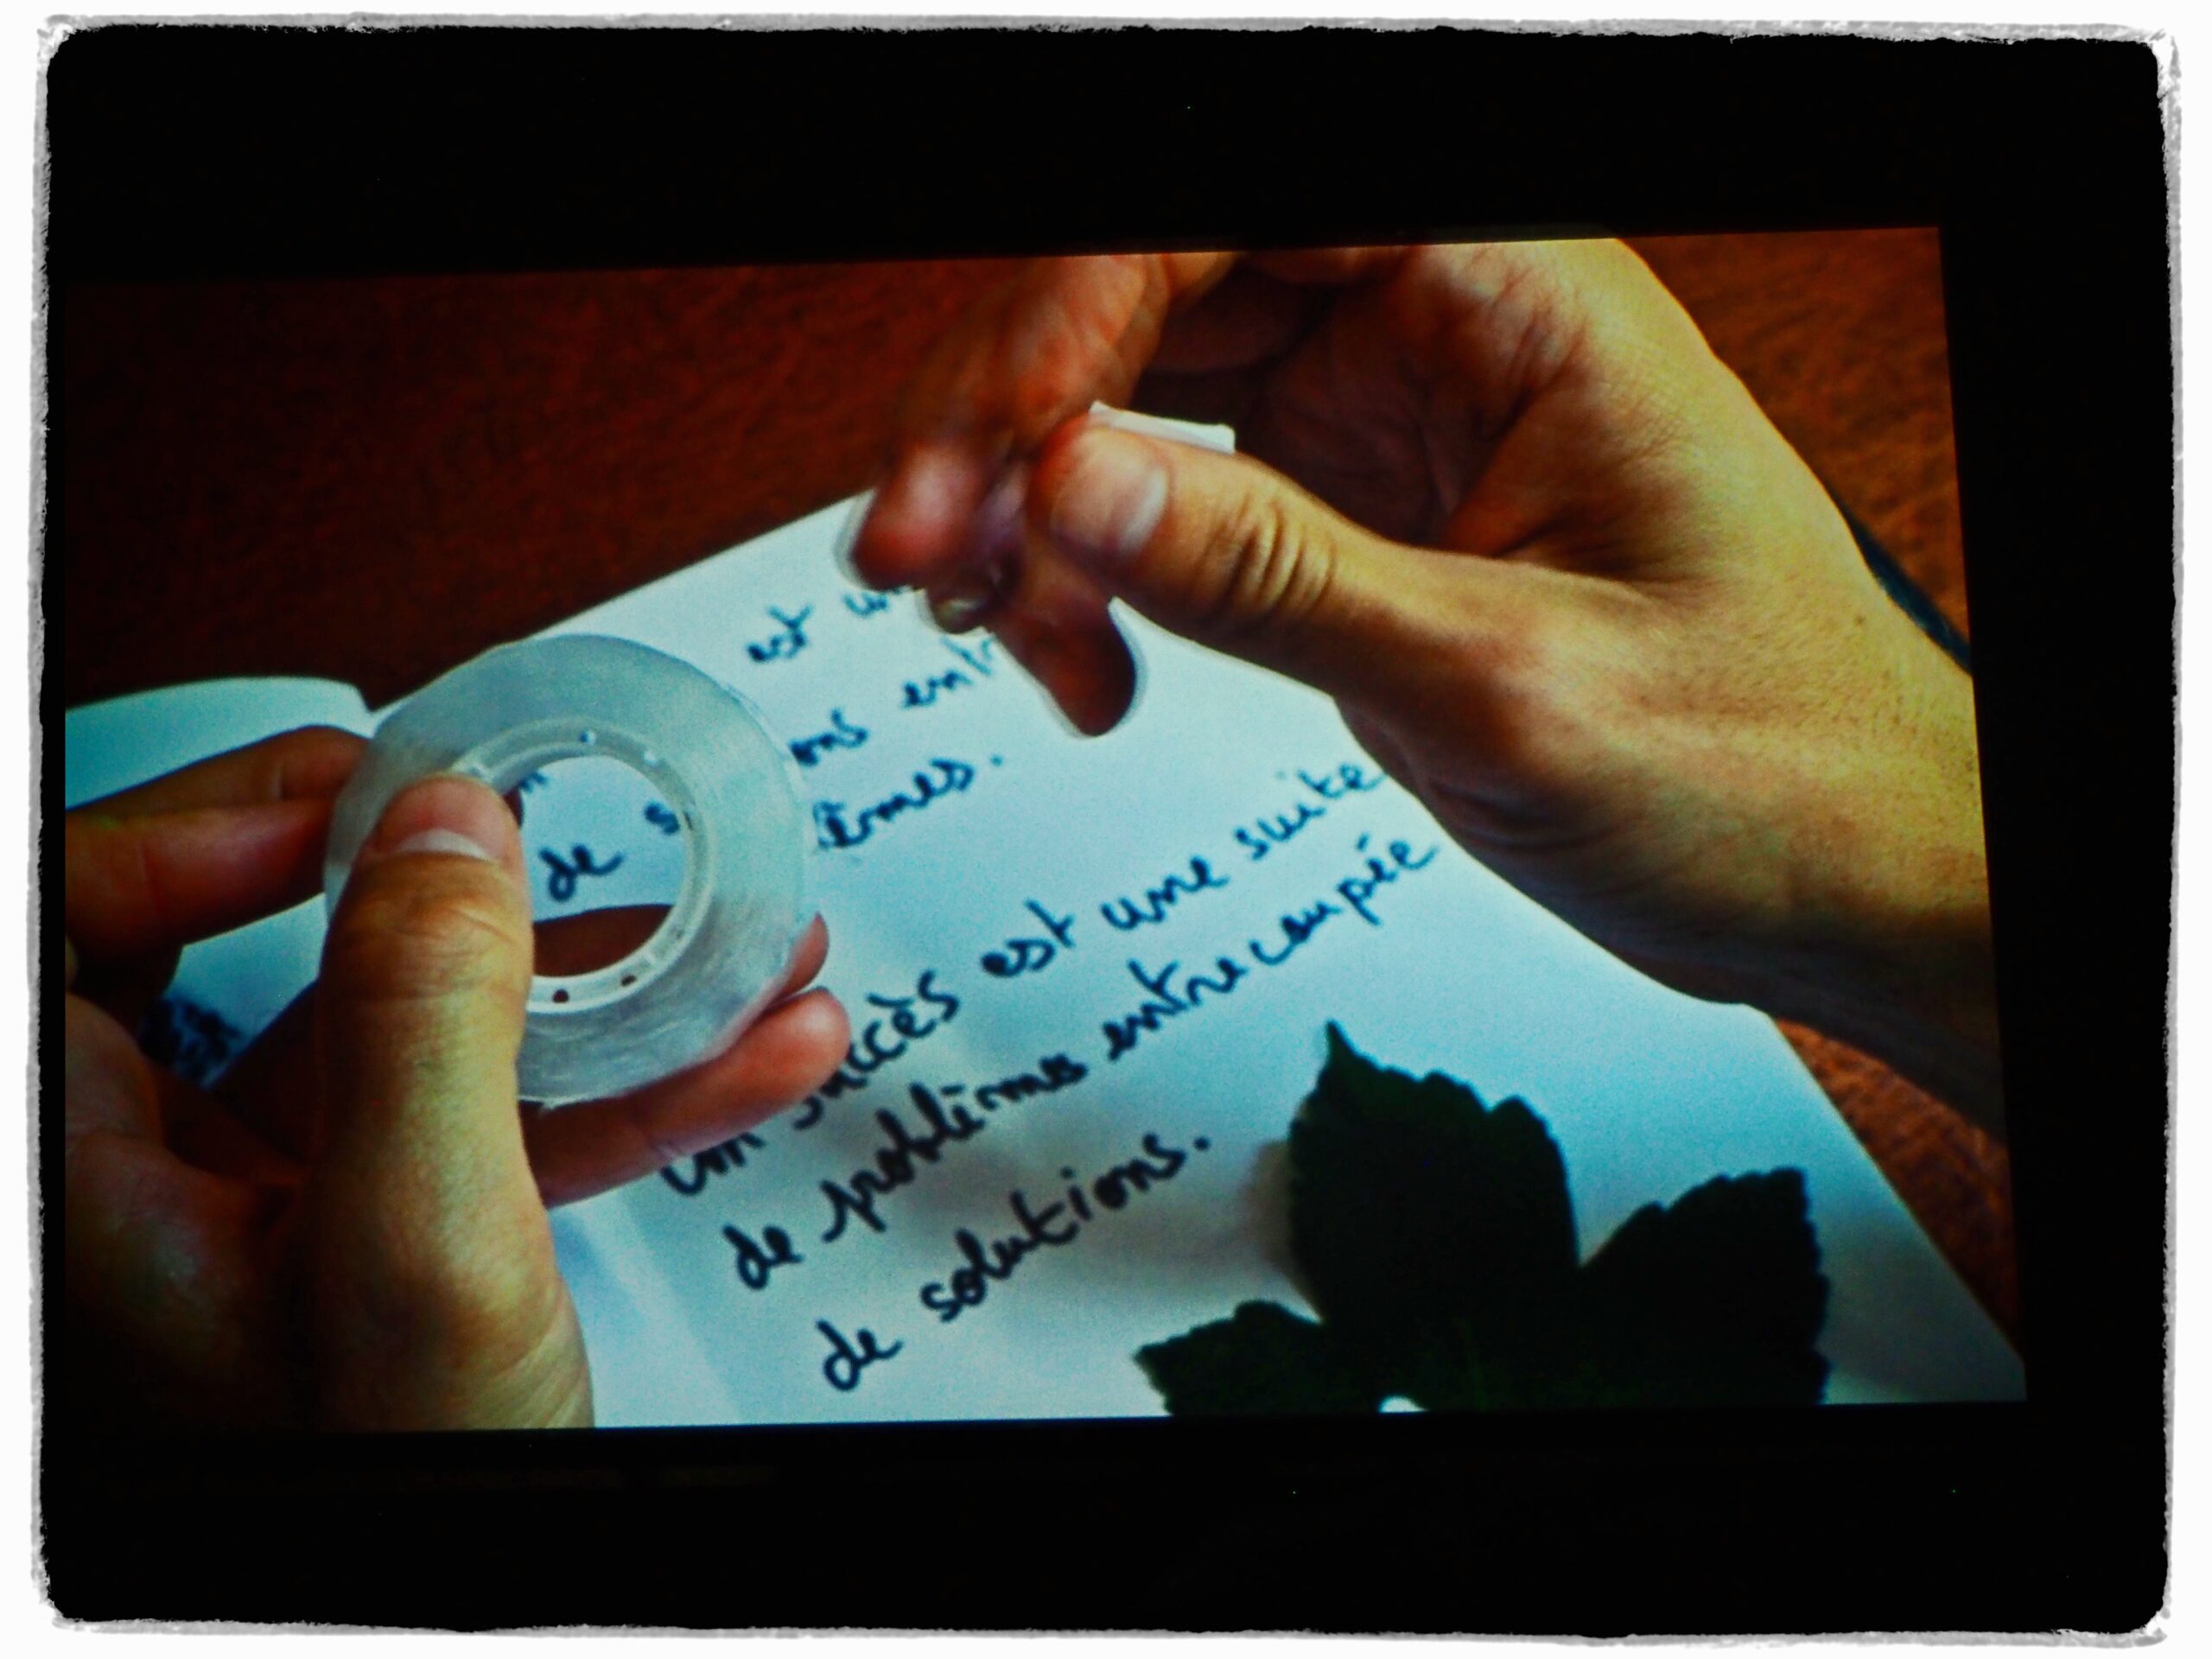 est un
de s ons entr
de èmes.
un succès est une suite
de problèmes entrecoupée
de solutions.